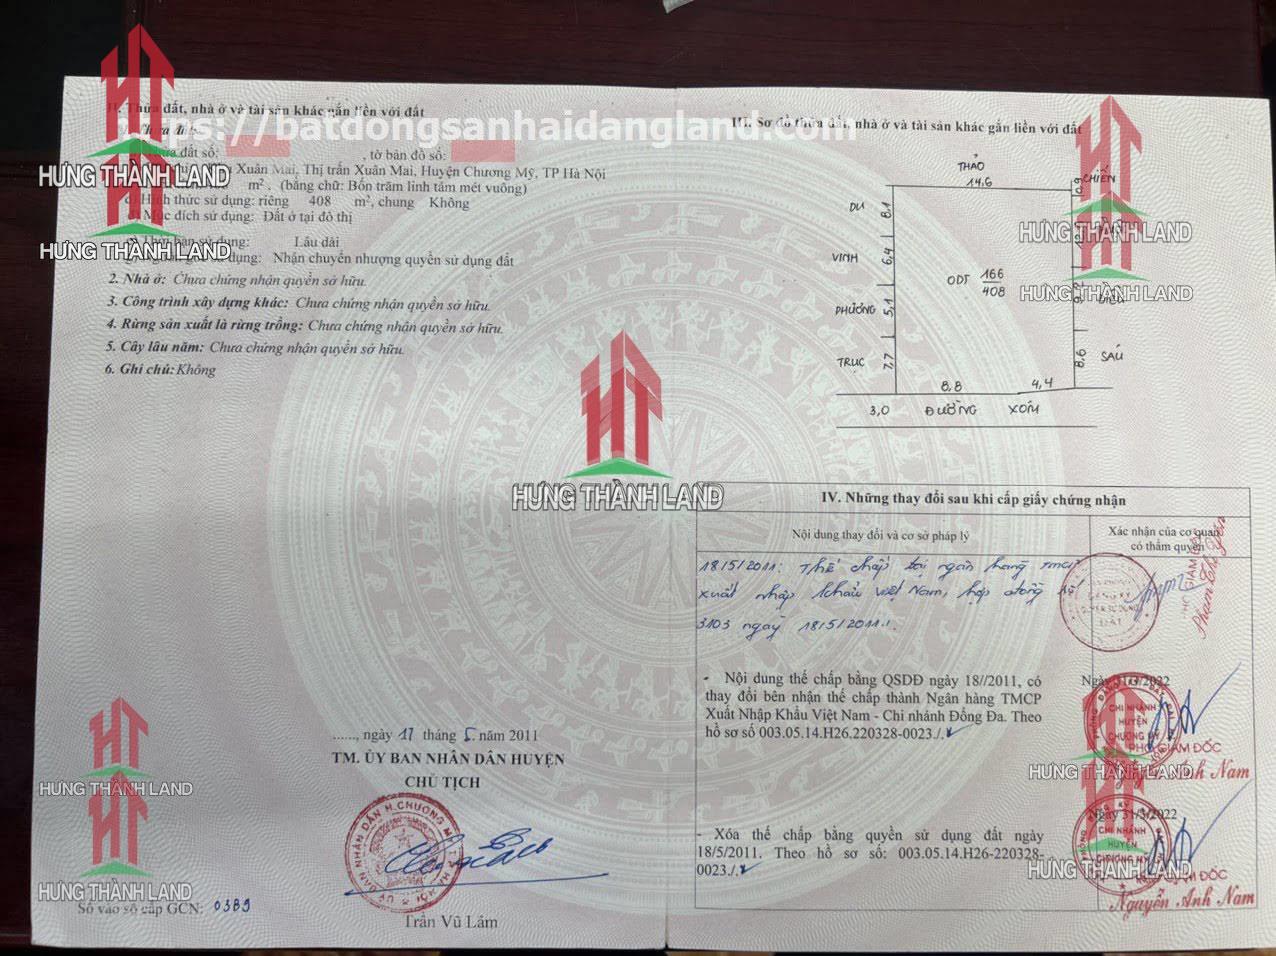 II. Thửa đất, nhà ở và tài sản khác gắn liền với đất
https://batdongsanhaidangland.com
đất số: , tờ bản đồ số:
Xuân Mai, Thị trấn Xuân Mai, Huyện Chương Mỹ, TP Hà Nội
m². (bằng chữ: Bốn trăm linh tám mét vuông)
Hình thức sử dụng: riêng 408 m², chung Không
Mục đích sử dụng: Đất ở tại đô thị
Thời hạn sử dụng: Lâu dài
sử dụng: Nhận chuyển nhượng quyền sử dụng đất
2. Nhà ở: Chưa chứng nhận quyền sở hữu.
3. Công trình xây dựng khác: Chưa chứng nhận quyền sở hữu.
4. Rừng sản xuất là rừng trồng: Chưa chứng nhận quyền sở hữu.
5. Cây lâu năm: Chưa chứng nhận quyền sở hữu.
6. Ghi chú: Không
HƯNG THÀNH LAND
HƯNG THÀNH LAND
......, ngày 17 tháng 5 năm 2011
TM. ỦY BAN NHÂN DÂN HUYỆN
CHỦ TỊCH
Trần Vũ Lâm
HƯNG THÀNH LAND
HƯNG THÀNH LAND
Số vào sổ cấp GCN: 0389
HƯNG THÀNH LAND
III. Sơ đồ thửa đất, nhà ở và tài sản khác gắn liền với đất
THẢO
14,6
0,9 CHIẾN
DU 8,1
VINH 6,4
ODT 166
408
PHƯƠNG 5,1
TRỤC 7,7
8,6 SÁU
8,8 4,4
3,0 ĐƯỜNG XÓM
HƯNG THÀNH LAND
HƯNG THÀNH LAND
IV. Những thay đổi sau khi cấp giấy chứng nhận
Nội dung thay đổi và cơ sở pháp lý
Xác nhận của cơ quan
có thẩm quyền
18/5/2011: Thế chấp tại ngân hàng TMCP
xuất nhập khẩu Việt Nam, hợp đồng số
3103 ngày 18/5/2011.
- Nội dung thế chấp bằng QSDĐ ngày 18//2011, có
thay đổi bên nhận thế chấp thành Ngân hàng TMCP
Xuất Nhập Khẩu Việt Nam - Chi nhánh Đống Đa. Theo
hồ sơ số 003.05.14.H26.220328-0023./.
Ngày 31/3/2022
CHI NHÁNH
HUYỆN
CHƯƠNG MỸ
PHÓ GIÁM ĐỐC
Nguyễn Anh Nam
HƯNG THÀNH LAND
- Xóa thế chấp bằng quyền sử dụng đất ngày
18/5/2011. Theo hồ sơ số: 003.05.14.H26-220328-
0023./.
Ngày 31/3/2022
CHI NHÁNH
HUYỆN
CHƯƠNG MỸ
GIÁM ĐỐC
Nguyễn Anh Nam
HƯNG THÀNH LAND